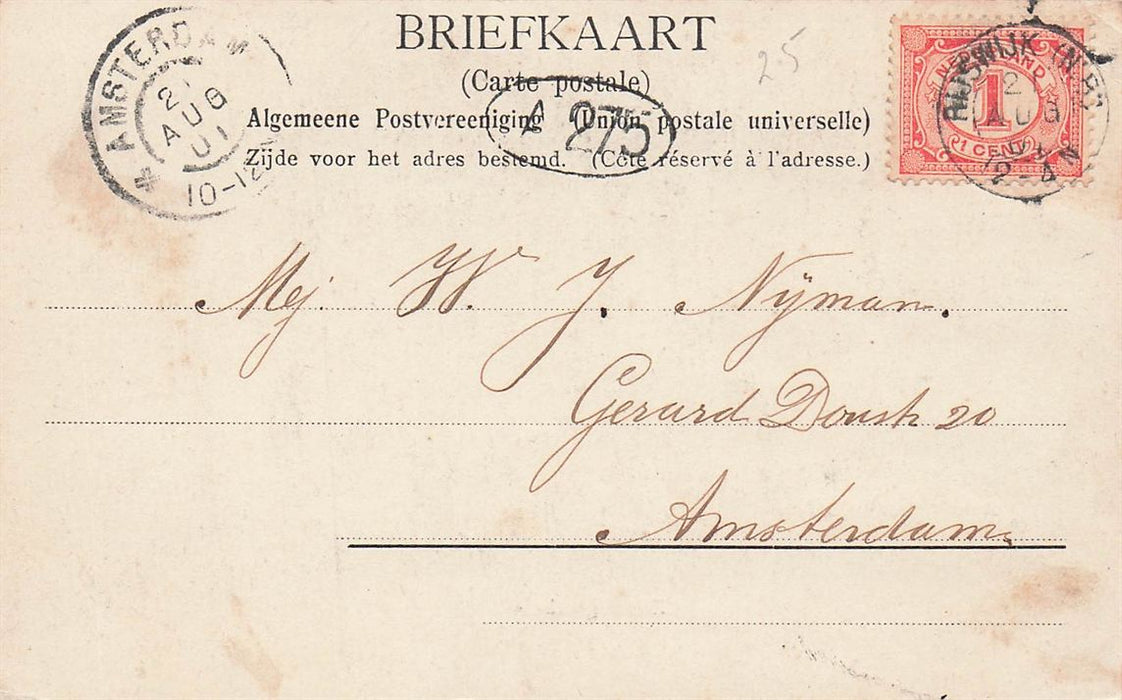 BRIEFKAART
(Carte postale)
Algemeene Postvereeniging (Union postale universelle)
Zijde voor het adres bestemd. (Côté réservé à l'adresse.)
25
A 275
AMSTERDAM
AUG
01
10-12
NEDERLAND
1
1 CENT
AUG
12-4
Mej. W. J. Nijman.
Gerard Doustr 20
Amsterdam